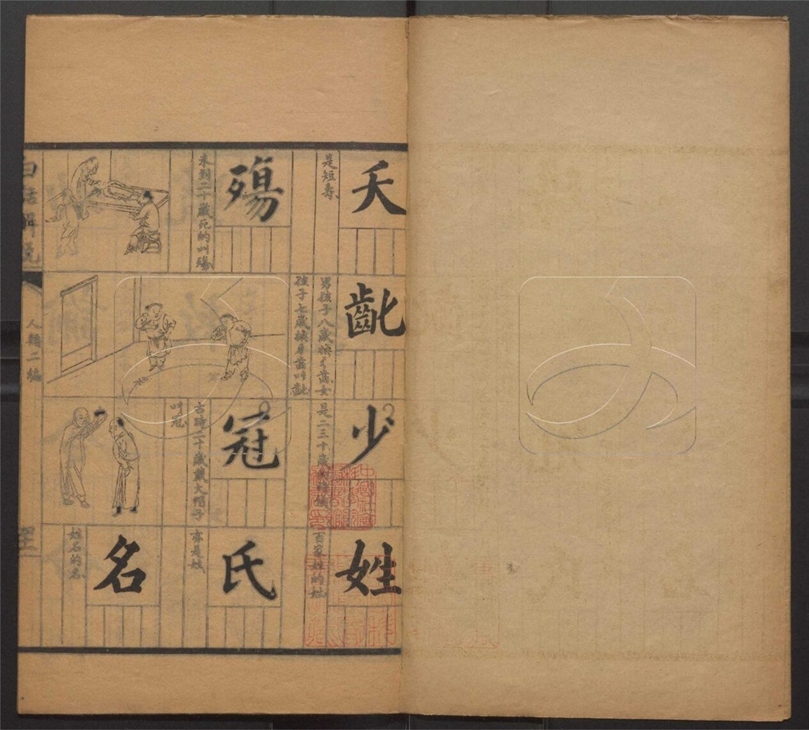 夭
是短壽
殤
未到二十歲死的叫殤
齔
男孩子八歲換牙齒女
孩子七歲換牙齒叫齔
少
是二三十歲的時候
冠
古時二十歲戴大帽子
叫冠
姓
百家姓的姓
氏
亦是姓
名
姓名的名
白話解説
人類二編